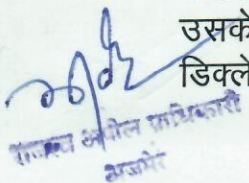 उसके
डिक्ले
राजस्व अपील प्राधिकारी
अजमेर